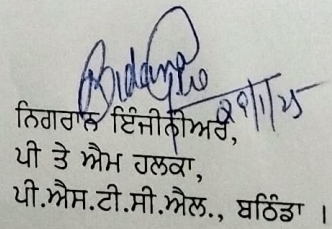 29/1/25
ਨਿਗਰਾਨ ਇੰਜੀਨੀਅਰ,
ਪੀ ਤੇ ਐਮ ਹਲਕਾ,
ਪੀ.ਐਸ.ਟੀ.ਸੀ.ਐਲ., ਬਠਿੰਡਾ ।